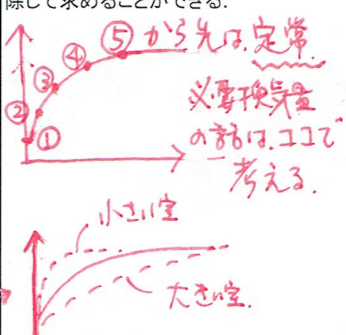 除して求めることができる.
⑤から先は、定常.
④
③
②
①
必要換気量
の話は、ココで
考える.
小さい室
大きい室.